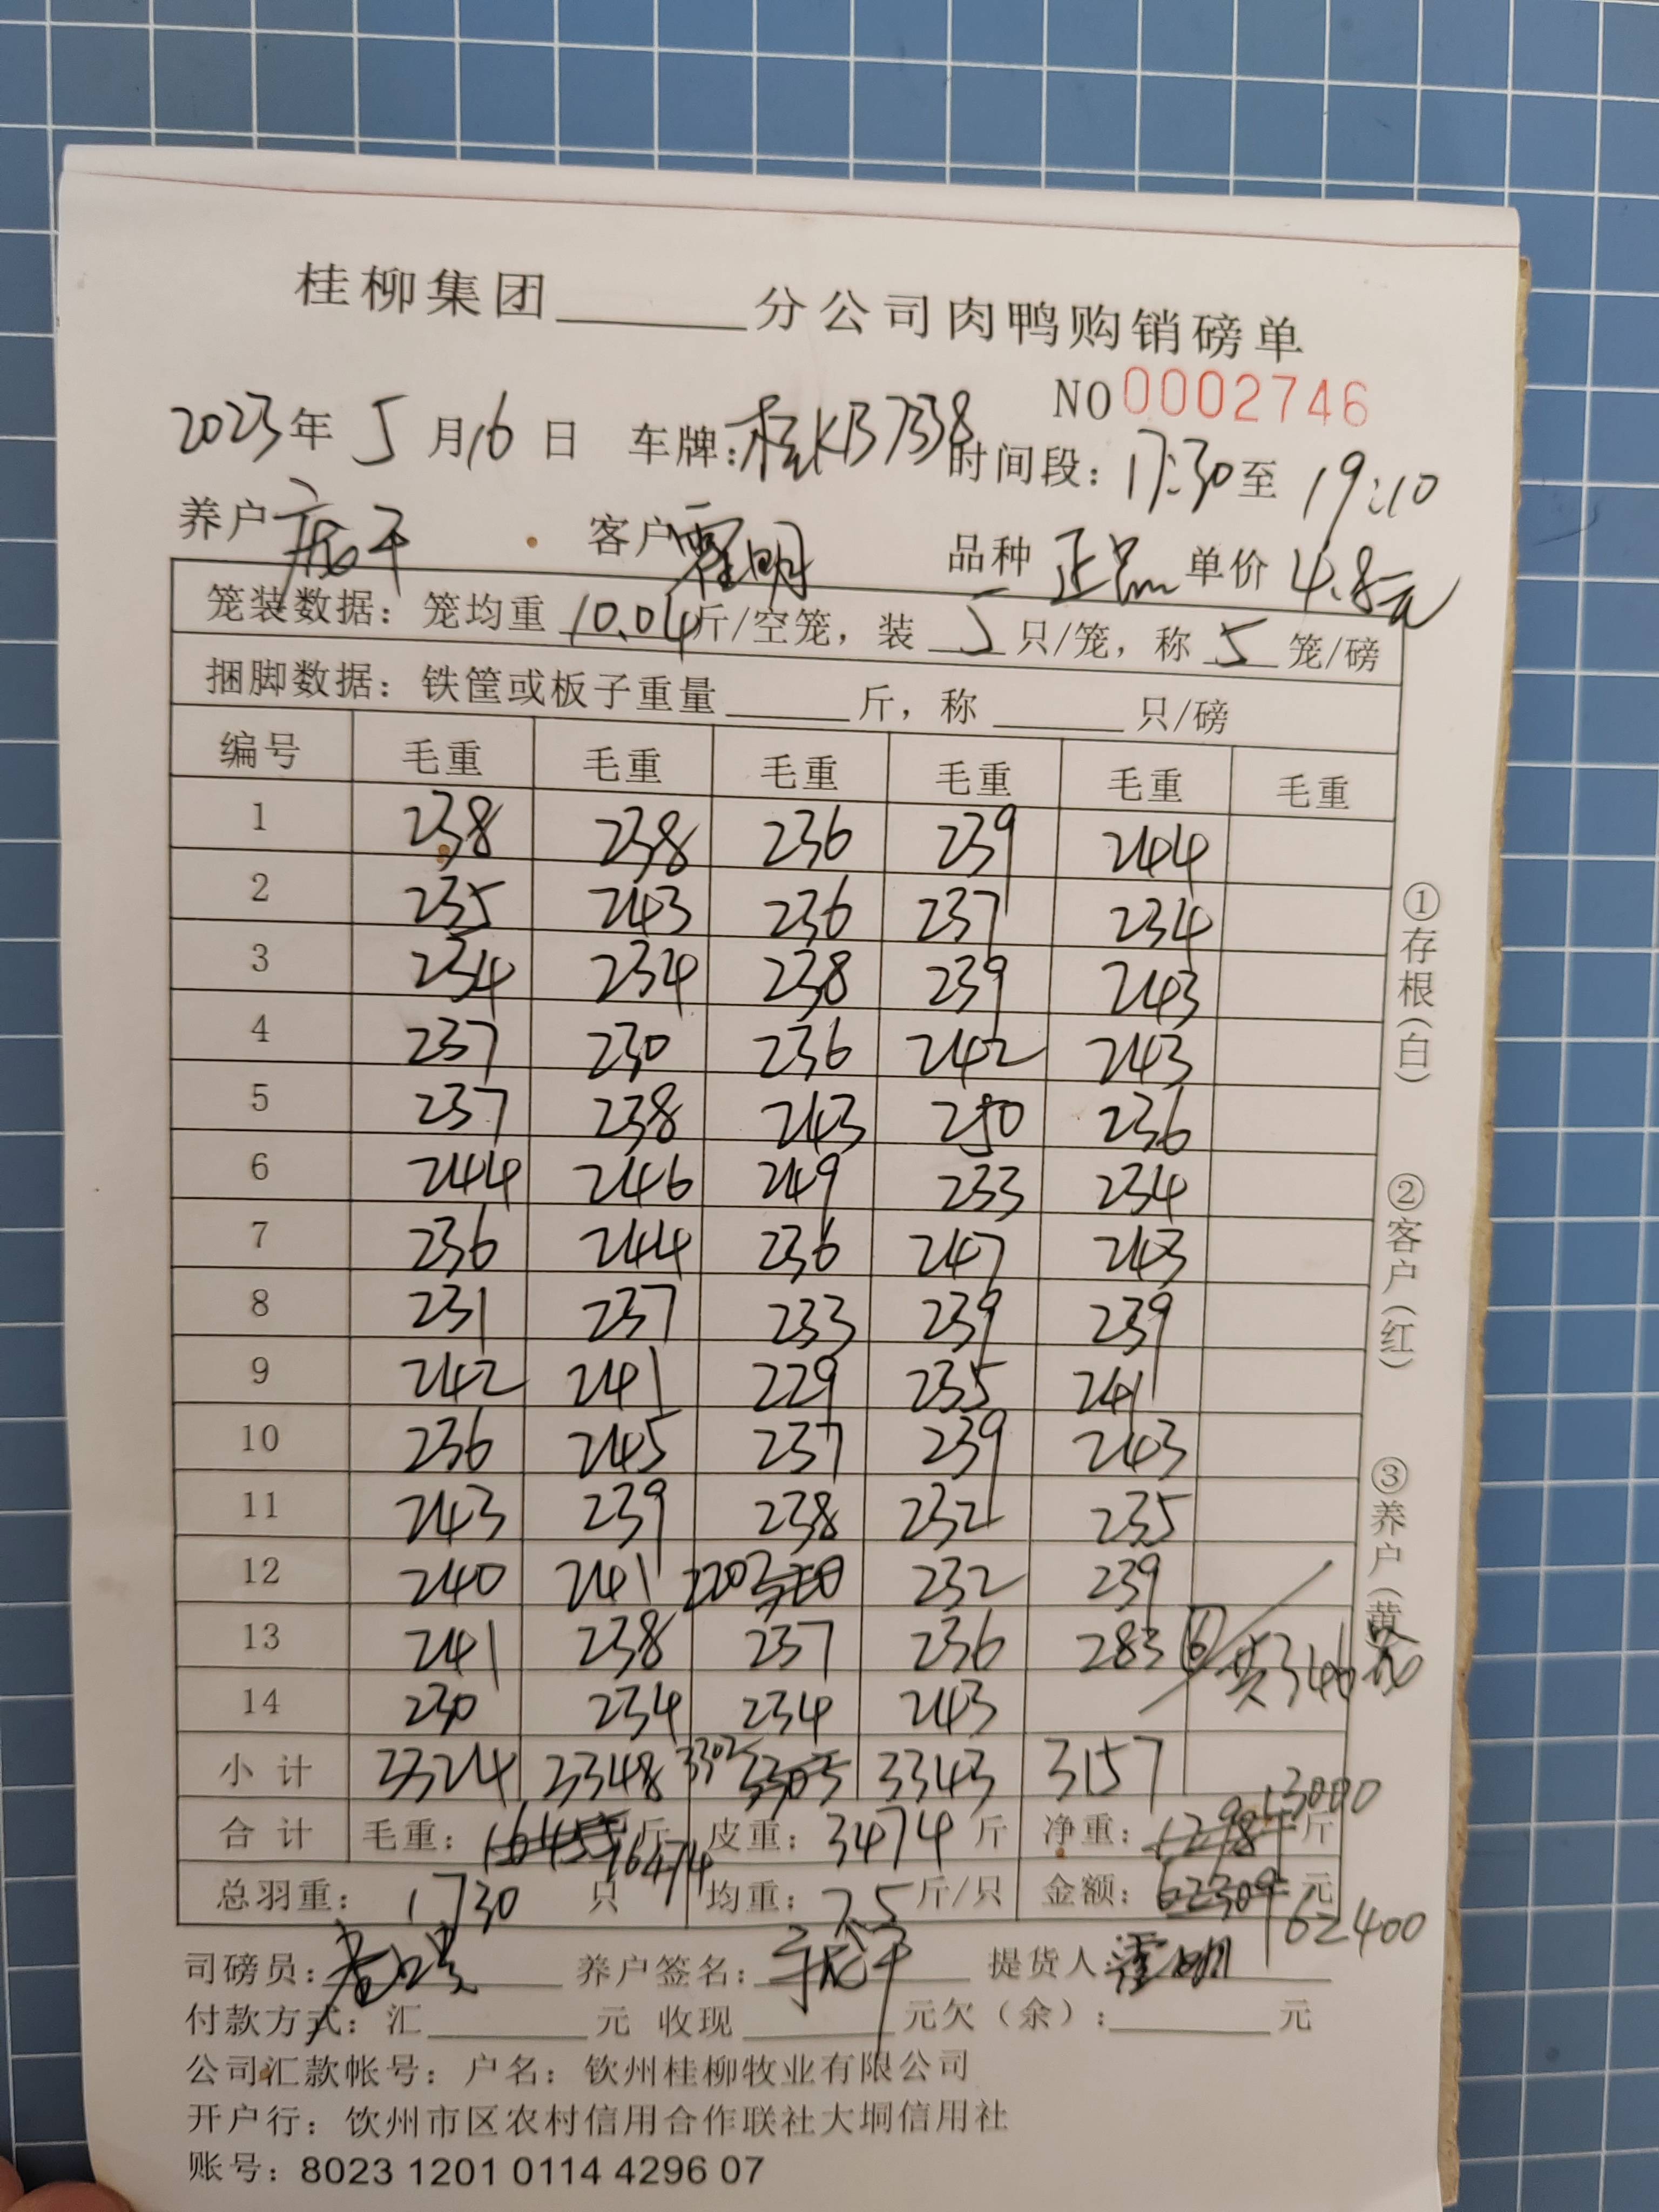 桂柳集团______分公司肉鸭购销磅单
NO 0002746
2023年 5 月 16 日 车牌：桂KB7338 时间段：17:30 至 19:10
养户 客户 霍明 品种 正品 单价 4.8元
笼装数据：笼均重 10.04 斤/空笼，装 5 只/笼，称 5 笼/磅
捆脚数据：铁筐或板子重量______斤，称______只/磅
编号 毛重 毛重 毛重 毛重 毛重 毛重
1 238 238 236 239 244
2 235 243 236 237 234
3 234 234 238 239 243
4 237 230 236 242 243
5 237 238 243 250 236
6 244 246 249 233 234
7 236 244 236 247 243
8 231 237 233 239 239
9 242 241 229 235 241
10 236 245 237 239 243
11 243 239 238 232 235
12 240 241 220 232 239
13 241 238 237 236 283 ⑥ 共346
14 230 234 234 243
小计 3324 3348 3302 3305 3343 3157
合计 毛重： 16455 16474 斤 皮重： 3474 斤 净重： 12981 13000 斤
总羽重： 1730 只 均重： 7.5 斤/只 金额： 62309 62400 元
司磅员： 养户签名： 提货人：霍明
付款方式：汇______元 收现______元欠（余）：______元
公司汇款帐号：户名：钦州桂柳牧业有限公司
开户行：钦州市区农村信用合作联社大垌信用社
账号：8023 1201 0114 4296 07
①存根（白）
②客户（红）
③养户（黄）